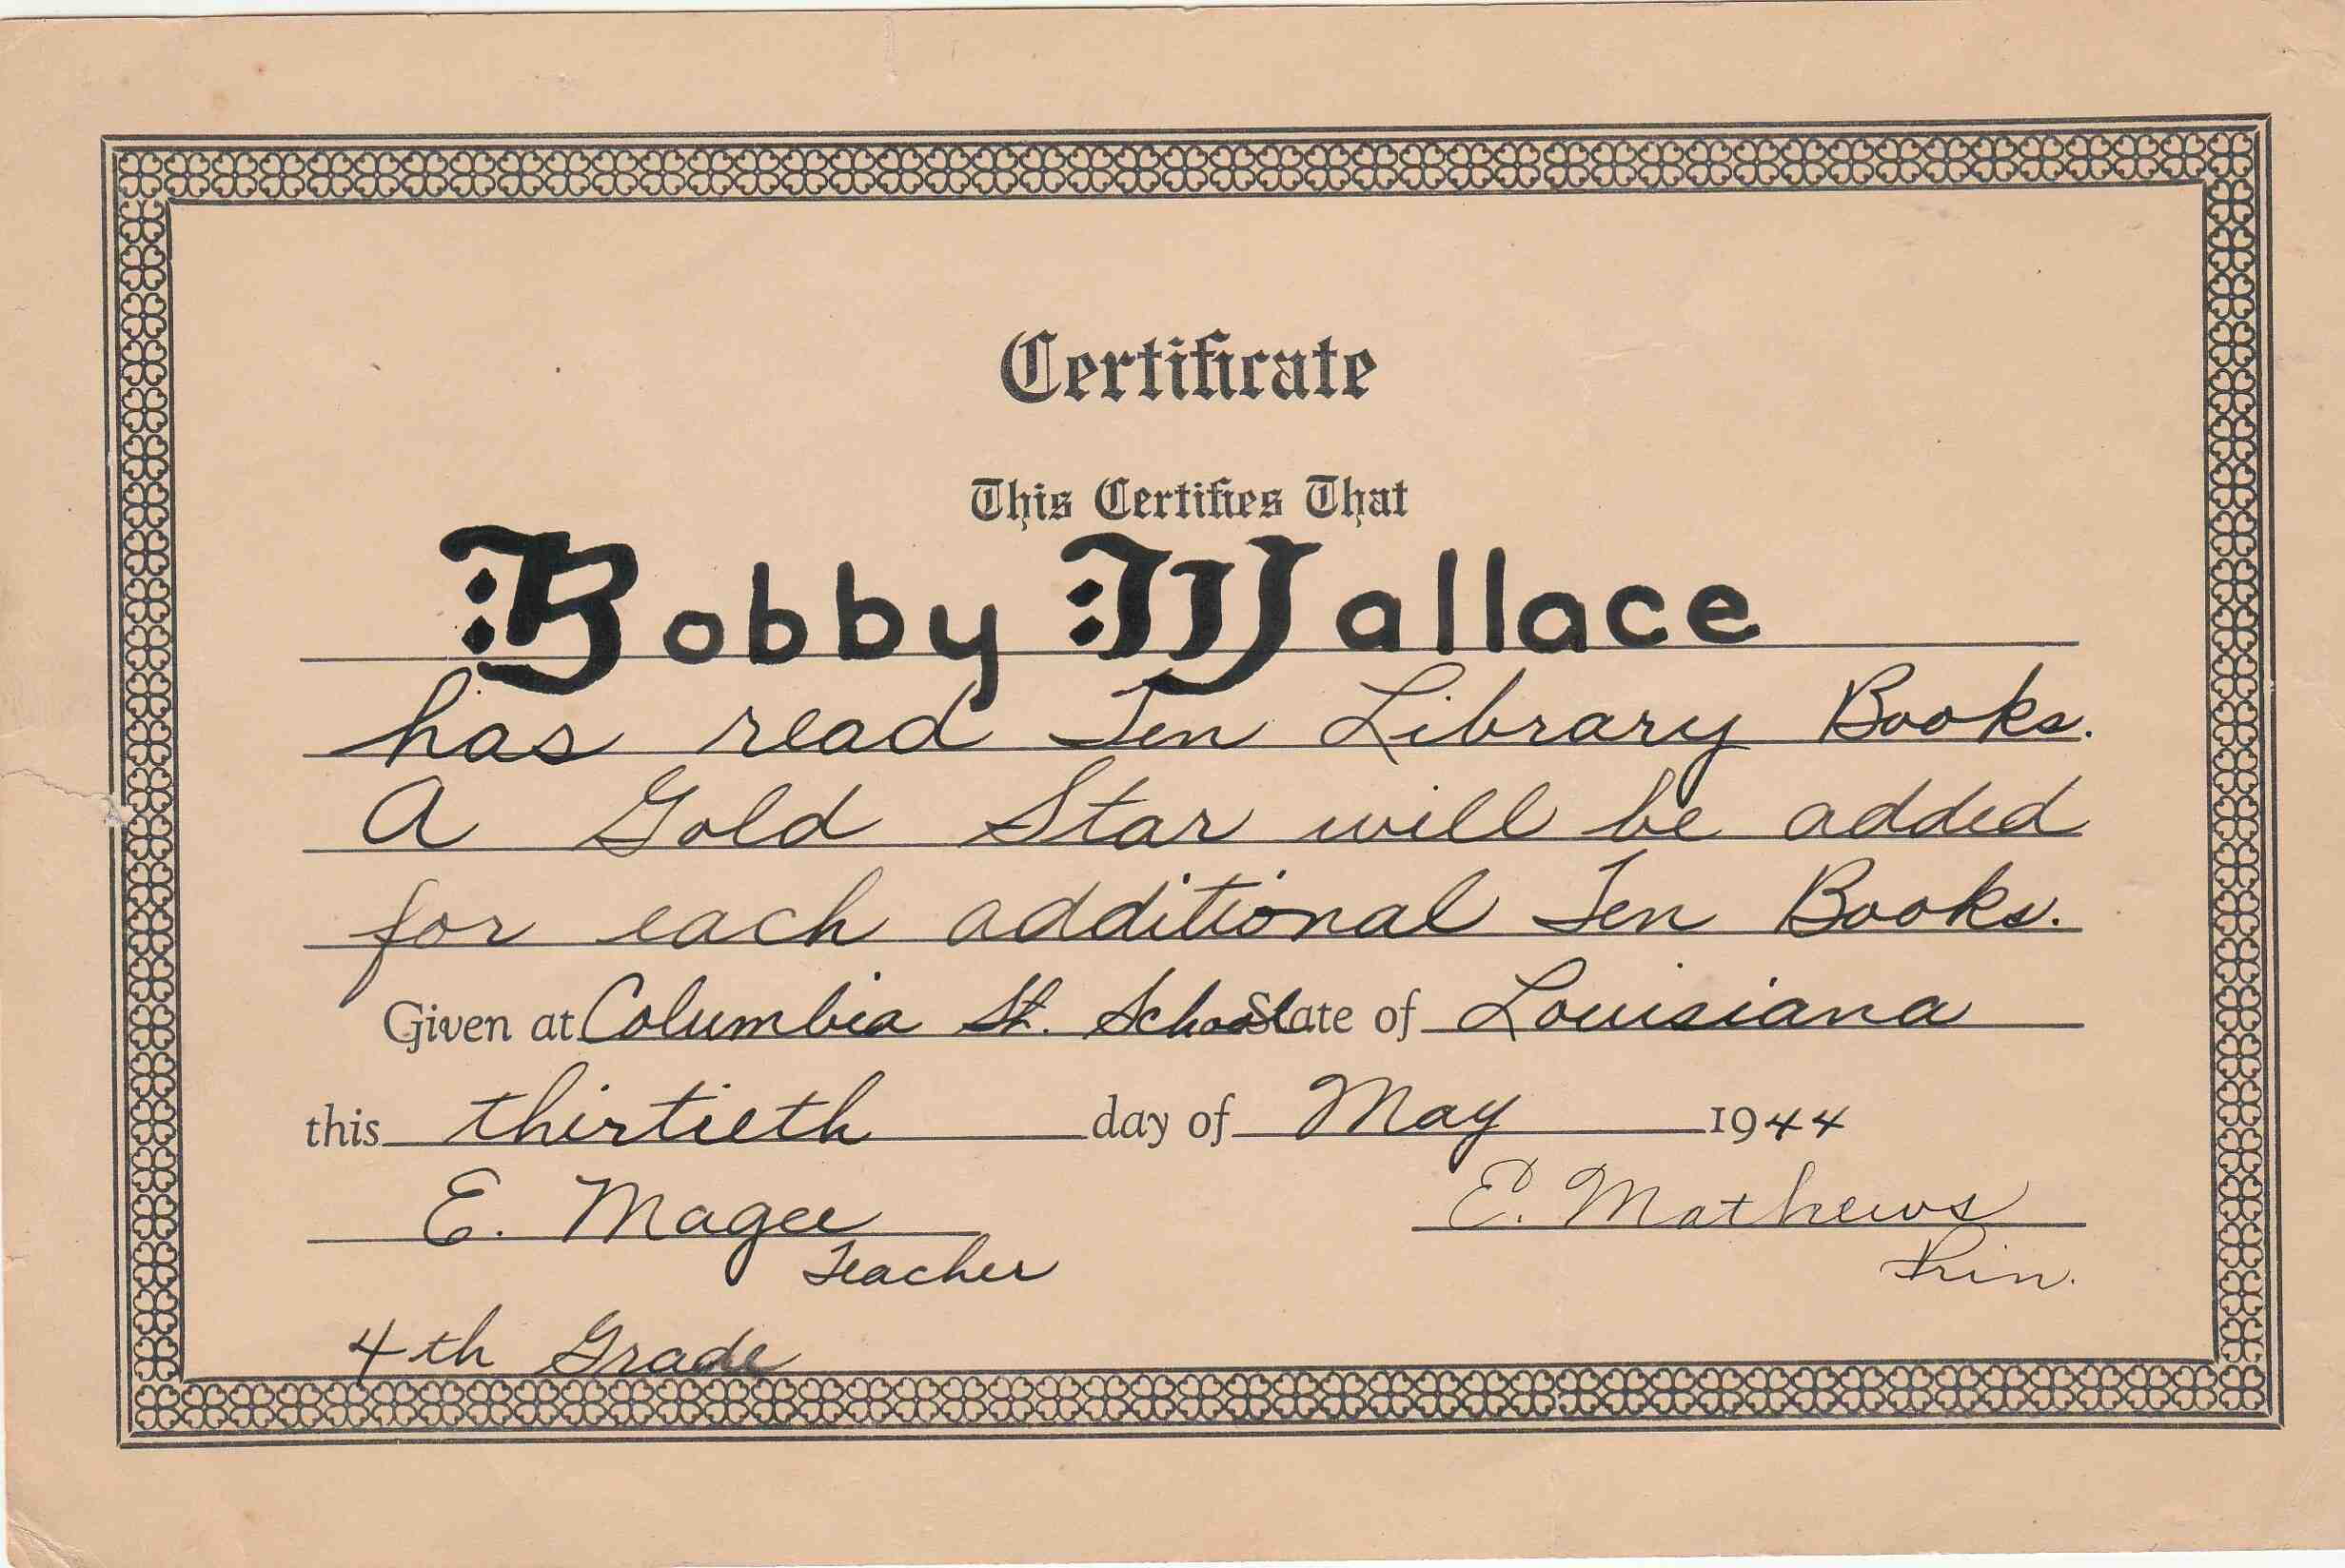 Certificate
This Certifies That
Bobby Wallace
has read Ten Library Books.
A Gold Star will be added
for each additional Ten Books.
Given at Columbia St. School State of Louisiana
this thirtieth day of May 1944
E. Magee E. Mathews
Teacher Prin.
4th Grade